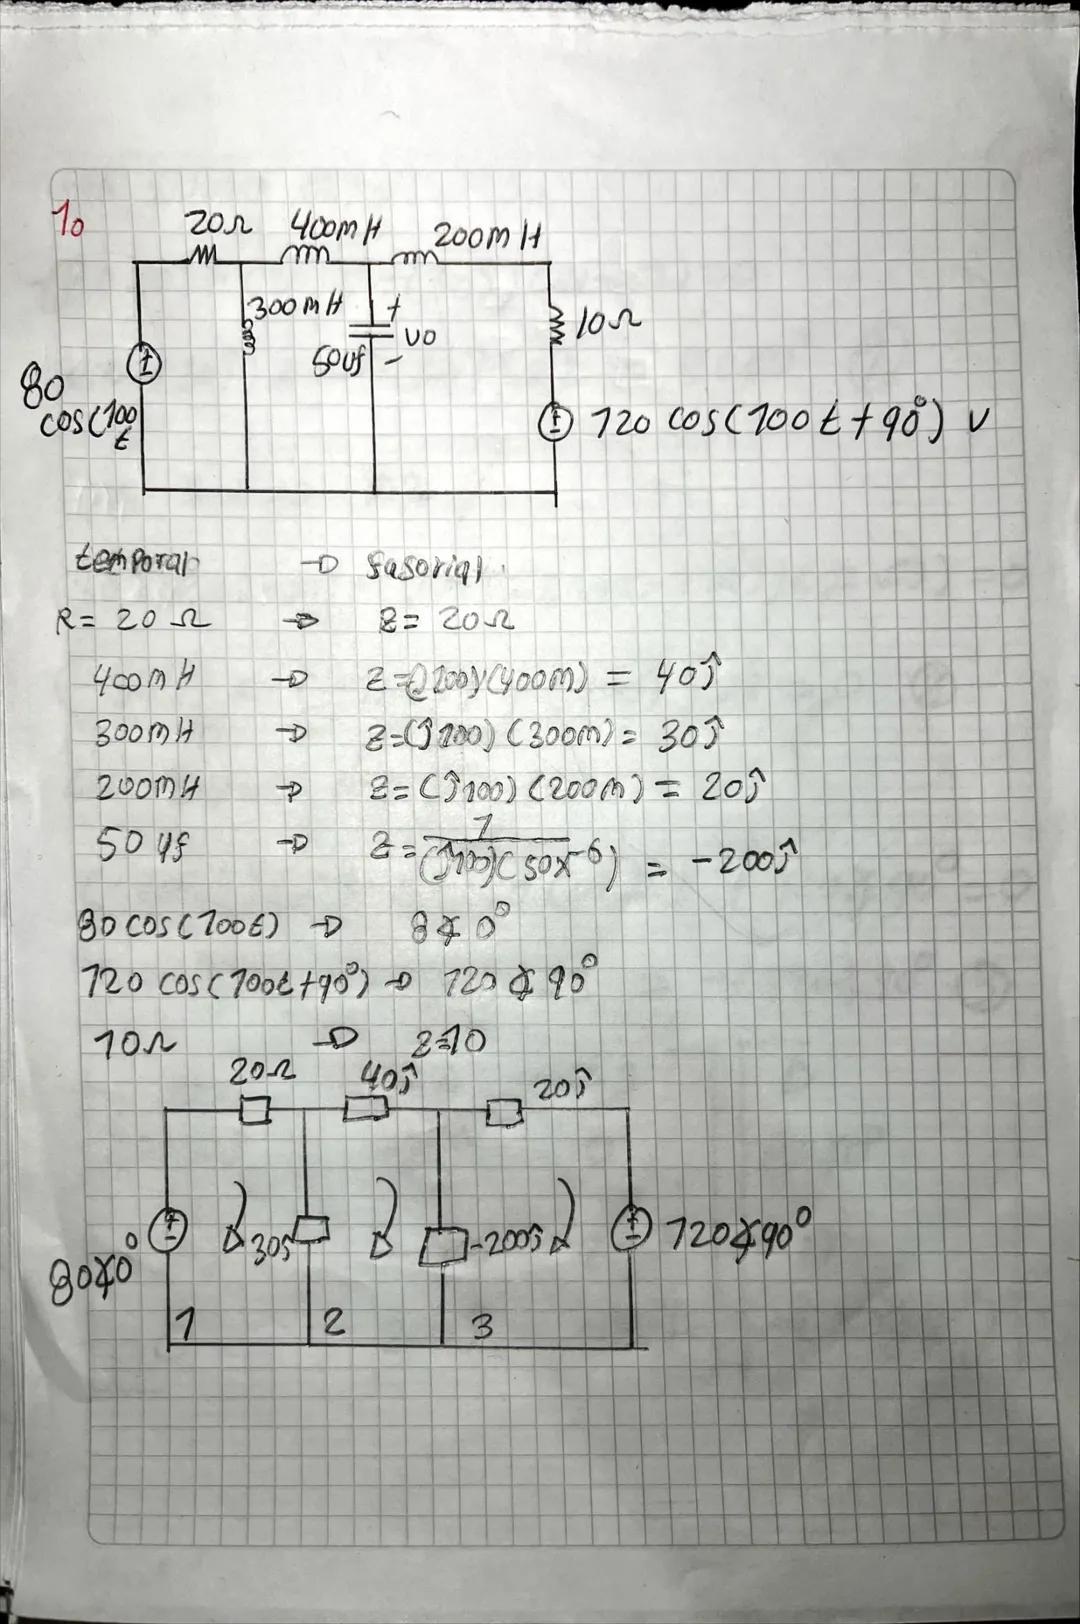 10
20Ω 400mH 200mH
300mH + 10Ω
50uf vo
-
80 cos(100t
120 cos(100t+90°) v
temporal → fasorial
R= 20Ω → Z= 20Ω
400mH → Z=(j100)(400m) = 40ĵ
300mH → Z=(ĵ100)(300m)= 30ĵ
200mH → Z=(ĵ100)(200m) = 20ĵ
50uf → Z= 1/(ĵ100)(50x-6) = -200ĵ
80 cos(100t) → 8∡0°
120 cos(100t+90°) → 120∡90°
10Ω → Z=10
20Ω 40ĵ 20ĵ
80∡0° 30ĵ -200ĵ 120∡90°
1 2 3